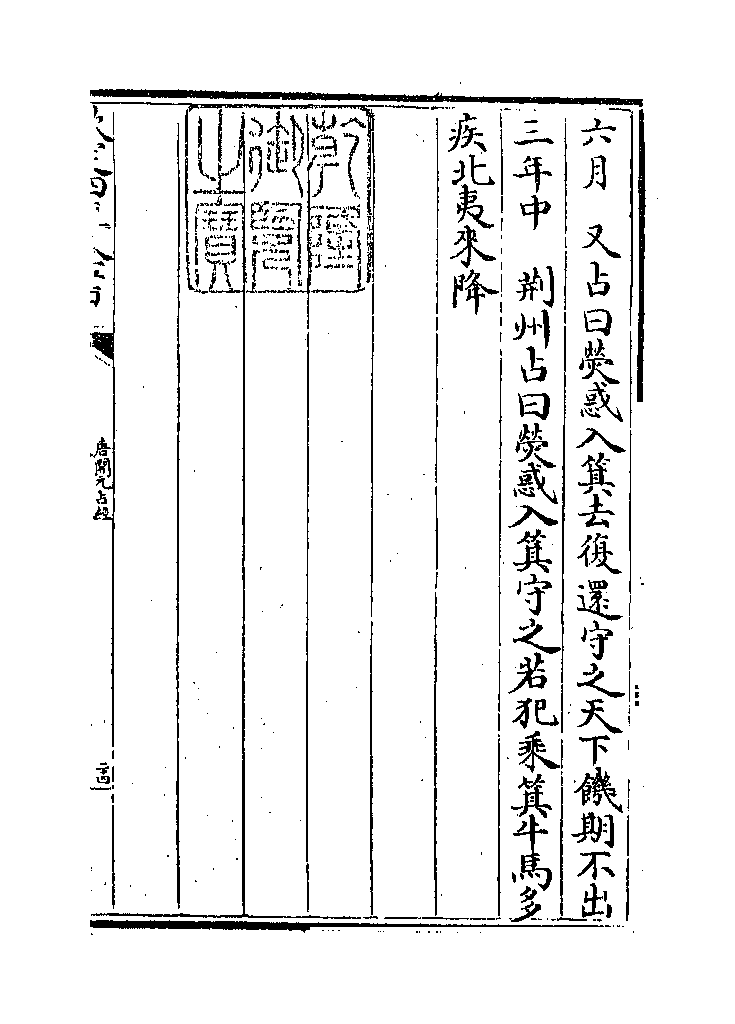 六月　又占曰熒惑入箕去復還守之天下饑期不出
三年中　荆州占曰熒惑入箕守之若犯乘箕牛馬多
疾北夷來降
乾隆御覽之寶
唐開元占經
二十四